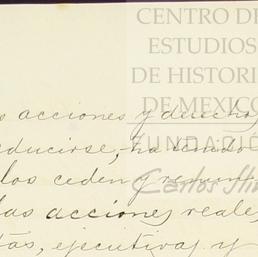 CENTRO DE
ESTUDIOS
DE HISTORI
DE MEXICO
FUNDACIÓ
Carlos Sli
s acciones y derecho
educirse, ha
los ceden y
las acciones reales,
tas, ejecutivas y